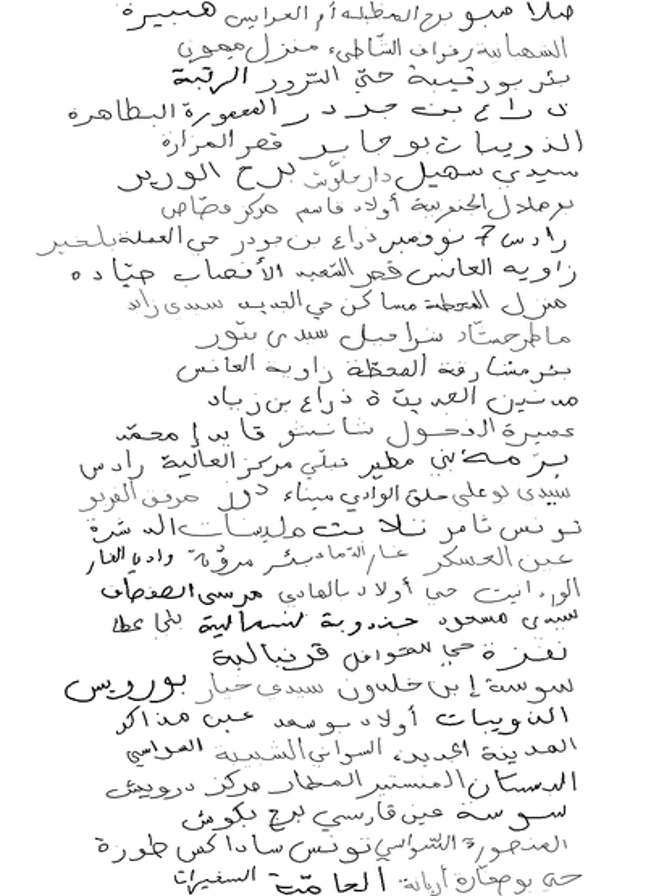 صلامبو برج الطبله أم العرايس هبيرة
الشهبانية رفراف الشاطىء منزل ميمون
بئر بورقيبة حي الترور الرتبة
ذراع بن جدر المعمورة البطاهرة
الذويبات بوجابر قصر المزارة
سيدي سهيل دار علوش برج الوزير
بوملال الجنوبية أولاد قاسم مركز قصاص
رادس 7 نوفمبر ذراع بن جودر حي العملة بلخير
زاويه العانس قصر السعيد الأنصاب
منزل المحطة مساكن حي الحديد سيدي زايد
ماطر حشاد شراحيل سيدي بنور
بئر مشارقة المحطة زاوية العانس
مدنين الحديثة ذراع بن زياد
عميرة الفحول شانشو قايد إ محمد
برمة بني مطير قبلي مركز العالية رادس
سيدي بو علي حلق الوادي ميناء دوز مرفق الفريو
تونس ثامر تلابت مليسات الدشرة
عين العسكر غار التماد بئر مروة وادي الغار
الوردانيت حي أولاد بالهادي مرسى
سيدي مسعود جندوبة الشمالية بلطا
نفزة حي قرنبالية
سوسة إبن خلدون سيدي خيار بورويس
الذويبات أولاد بوسعد عين مذاكر
المدينة الجديدة السواني الشبيبة السواسي
البستان المنستير المطار مركز درويش
سوسة عين قارسي برج بكوش
المنصورة السواسي تونس ساداكس طوزة
حي بوصفارة أريانة الحامة السفيرات